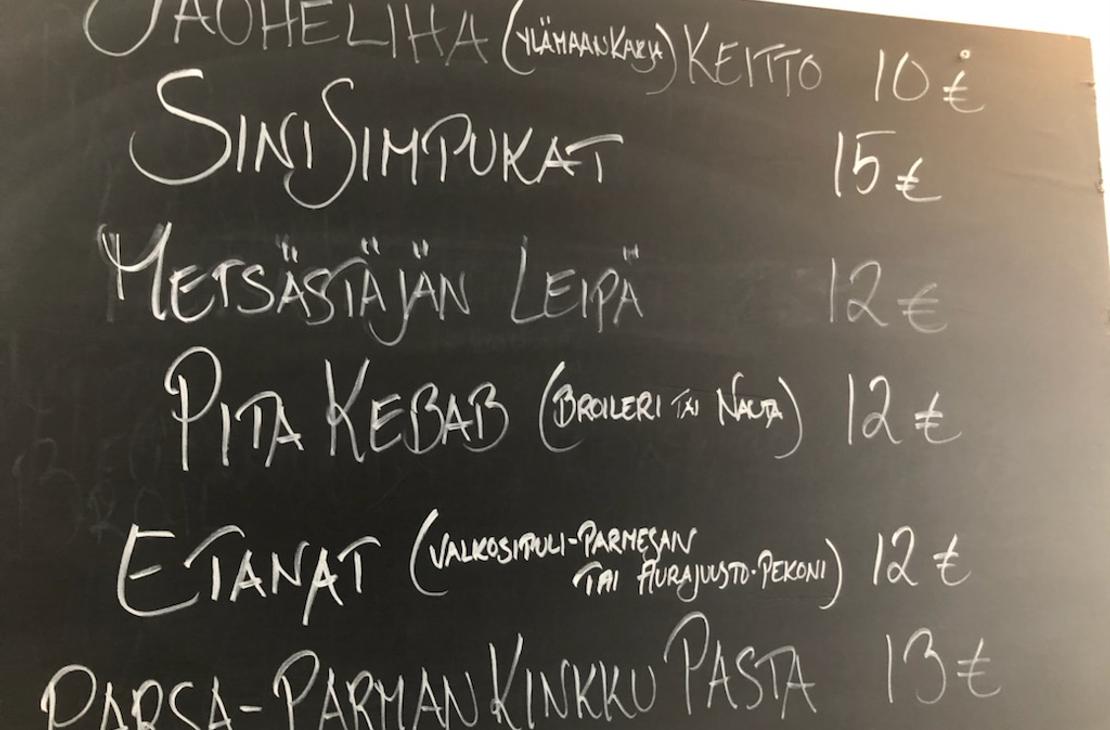 JAUHELIHA (YLÄMAANKARJA) KEITTO 10 €
SINISIMPUKAT 15 €
METSÄSTÄJÄN LEIPÄ 12 €
PITA KEBAB (BROILERI TAI NAUTA) 12 €
ETANAT (VALKOSIPULI-PARMESAN
TAI AURAJUUSTO-PEKONI) 12 €
PARSA-PARMANKINKKU PASTA 13 €